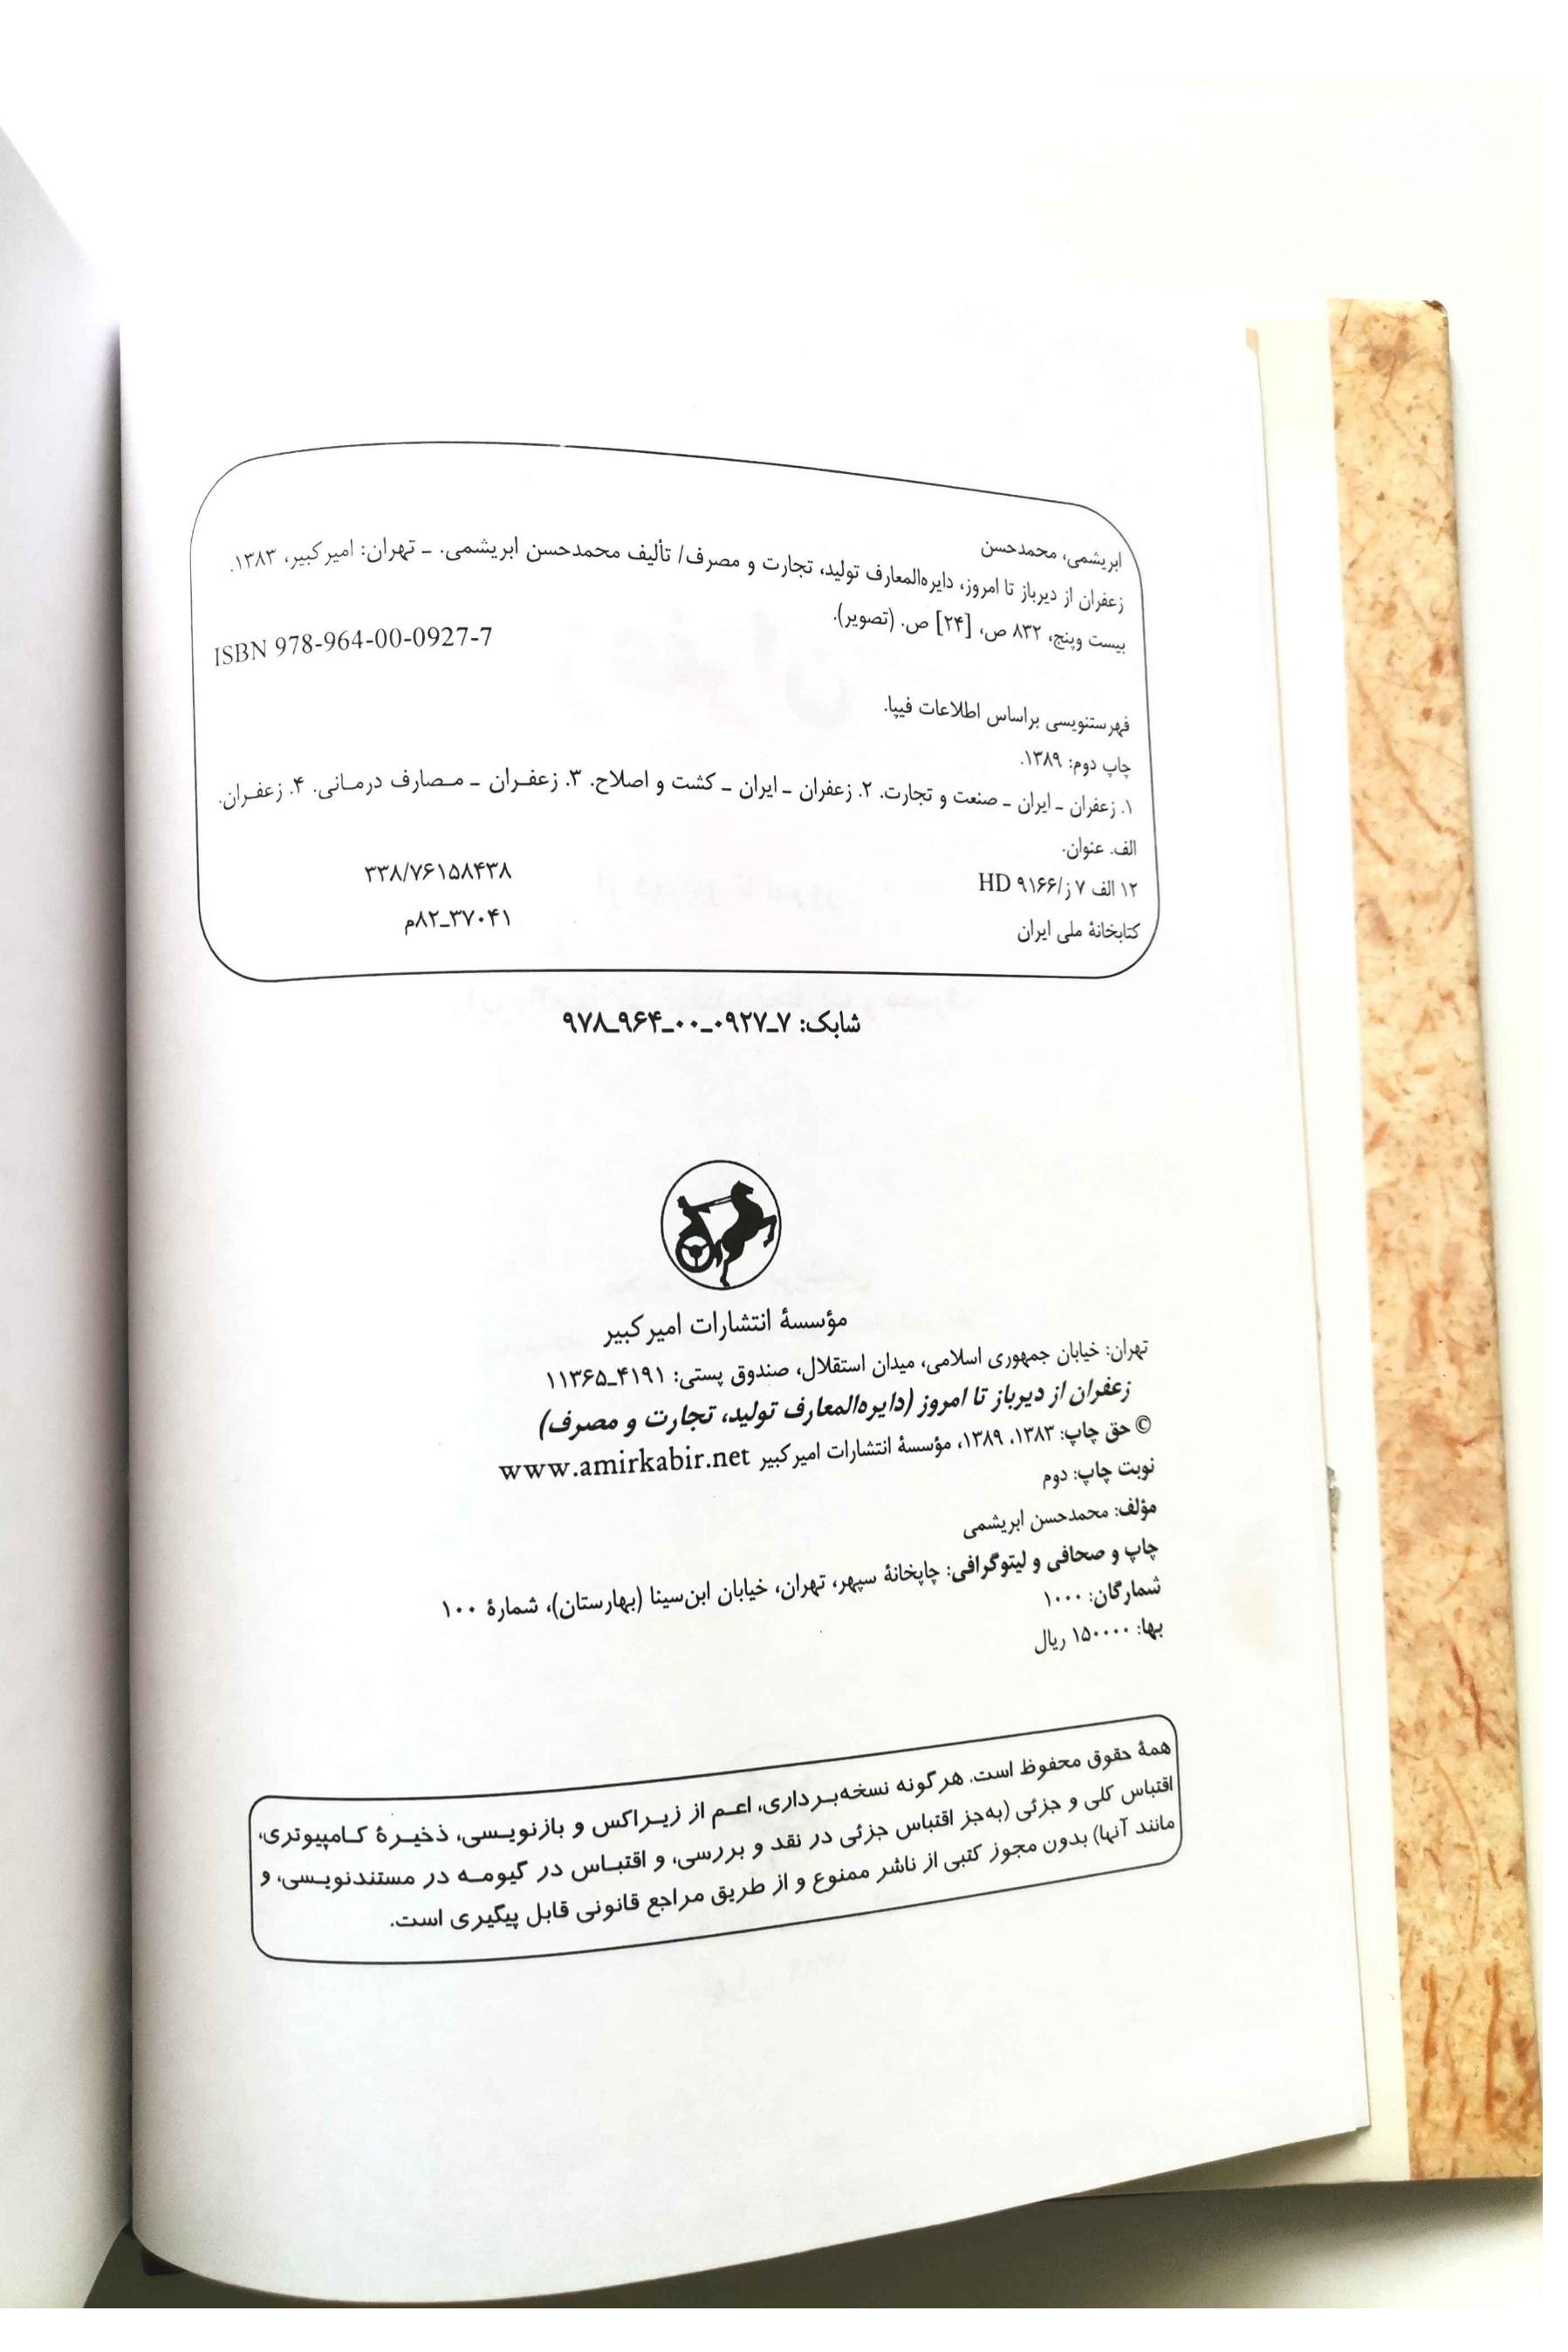 ابریشمی، محمدحسن
زعفران از دیرباز تا امروز، دایره‌المعارف تولید، تجارت و مصرف/ تألیف محمدحسن ابریشمی. ـ تهران: امیرکبیر، ۱۳۸۳.
بیست وپنج، ۸۳۲ ص، [۲۴] ص. (تصویر).
ISBN 978-964-00-0927-7
فهرستنویسی براساس اطلاعات فیپا.
چاپ دوم: ۱۳۸۹.
۱. زعفران ـ ایران ـ صنعت و تجارت. ۲. زعفران ـ ایران ـ کشت و اصلاح. ۳. زعفـران ـ مـصارف درمـانی. ۴. زعفـران.
الف. عنوان.
۱۲ الف ۷ ز/۹۱۶۶ HD ۳۳۸/۷۶۱۵۸۴۳۸
کتابخانهٔ ملی ایران ۳۷۰۴۱ـ۸۲م
شابک: ۷ـ۰۹۲۷ـ۰۰ـ۹۶۴ـ۹۷۸
مؤسسهٔ انتشارات امیرکبیر
تهران: خیابان جمهوری اسلامی، میدان استقلال، صندوق پستی: ۴۱۹۱ـ۱۱۳۶۵
زعفران از دیرباز تا امروز (دایره‌المعارف تولید، تجارت و مصرف)
© حق چاپ: ۱۳۸۳، ۱۳۸۹، مؤسسهٔ انتشارات امیرکبیر www.amirkabir.net
نوبت چاپ: دوم
مؤلف: محمدحسن ابریشمی
چاپ و صحافی و لیتوگرافی: چاپخانهٔ سپهر، تهران، خیابان ابن‌سینا (بهارستان)، شمارهٔ ۱۰۰
شمارگان: ۱۰۰۰
بها: ۱۵۰۰۰۰ ریال
همهٔ حقوق محفوظ است. هرگونه نسخه‌بـرداری، اعـم از زیـراکس و بازنویـسی، ذخیـرهٔ کـامپیوتری،
اقتباس کلی و جزئی (به‌جز اقتباس جزئی در نقد و بررسی، و اقتبـاس در گیومـه در مستندنویـسی، و
مانند آنها) بدون مجوز کتبی از ناشر ممنوع و از طریق مراجع قانونی قابل پیگیری است.